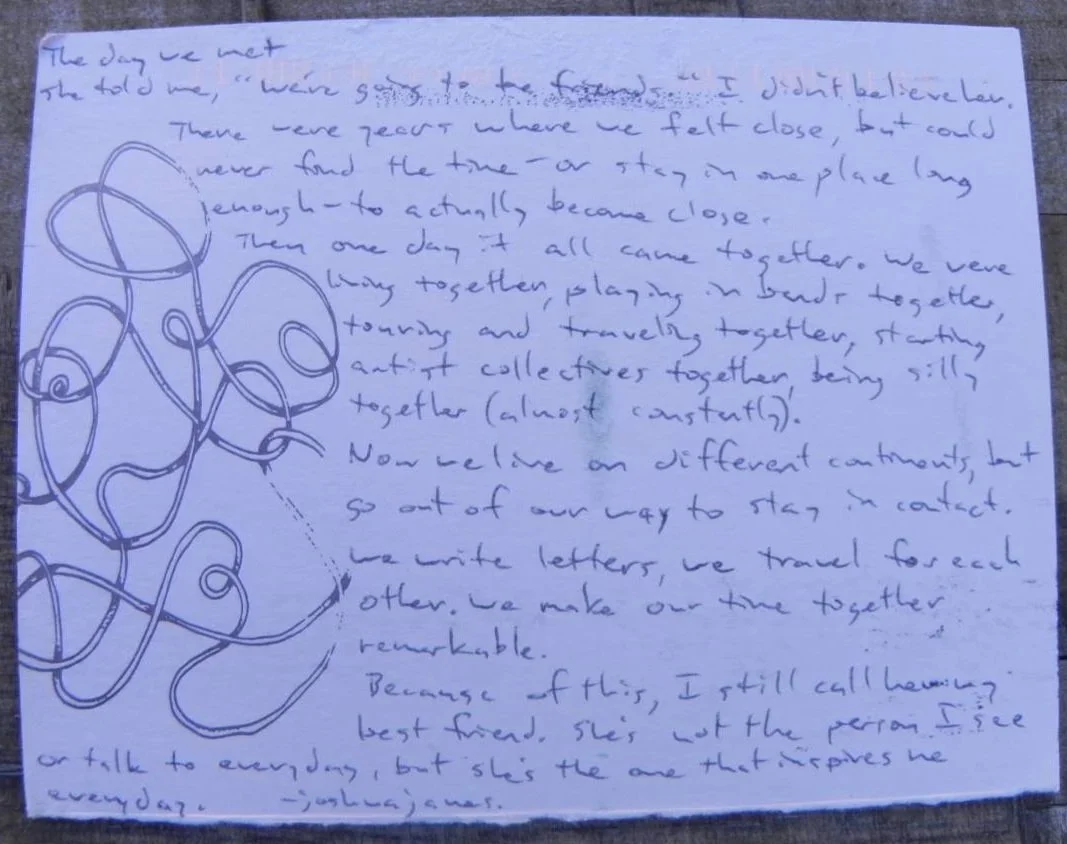 The day we met
she told me, "we're going to be friends." I didn't believe her.
There were years where we felt close, but could
never find the time - or stay in one place long
enough - to actually become close.
Then one day it all came together. We were
living together, playing in bands together,
touring and traveling together, starting
artist collectives together, being silly
together (almost constantly).
Now we live on different continents, but
go out of our way to stay in contact.
we write letters, we travel for each
other. we make our time together
remarkable.
Because of this, I still call her my
best friend. she's not the person I see
or talk to everyday, but she's the one that inspires me
everyday. -joshua james.